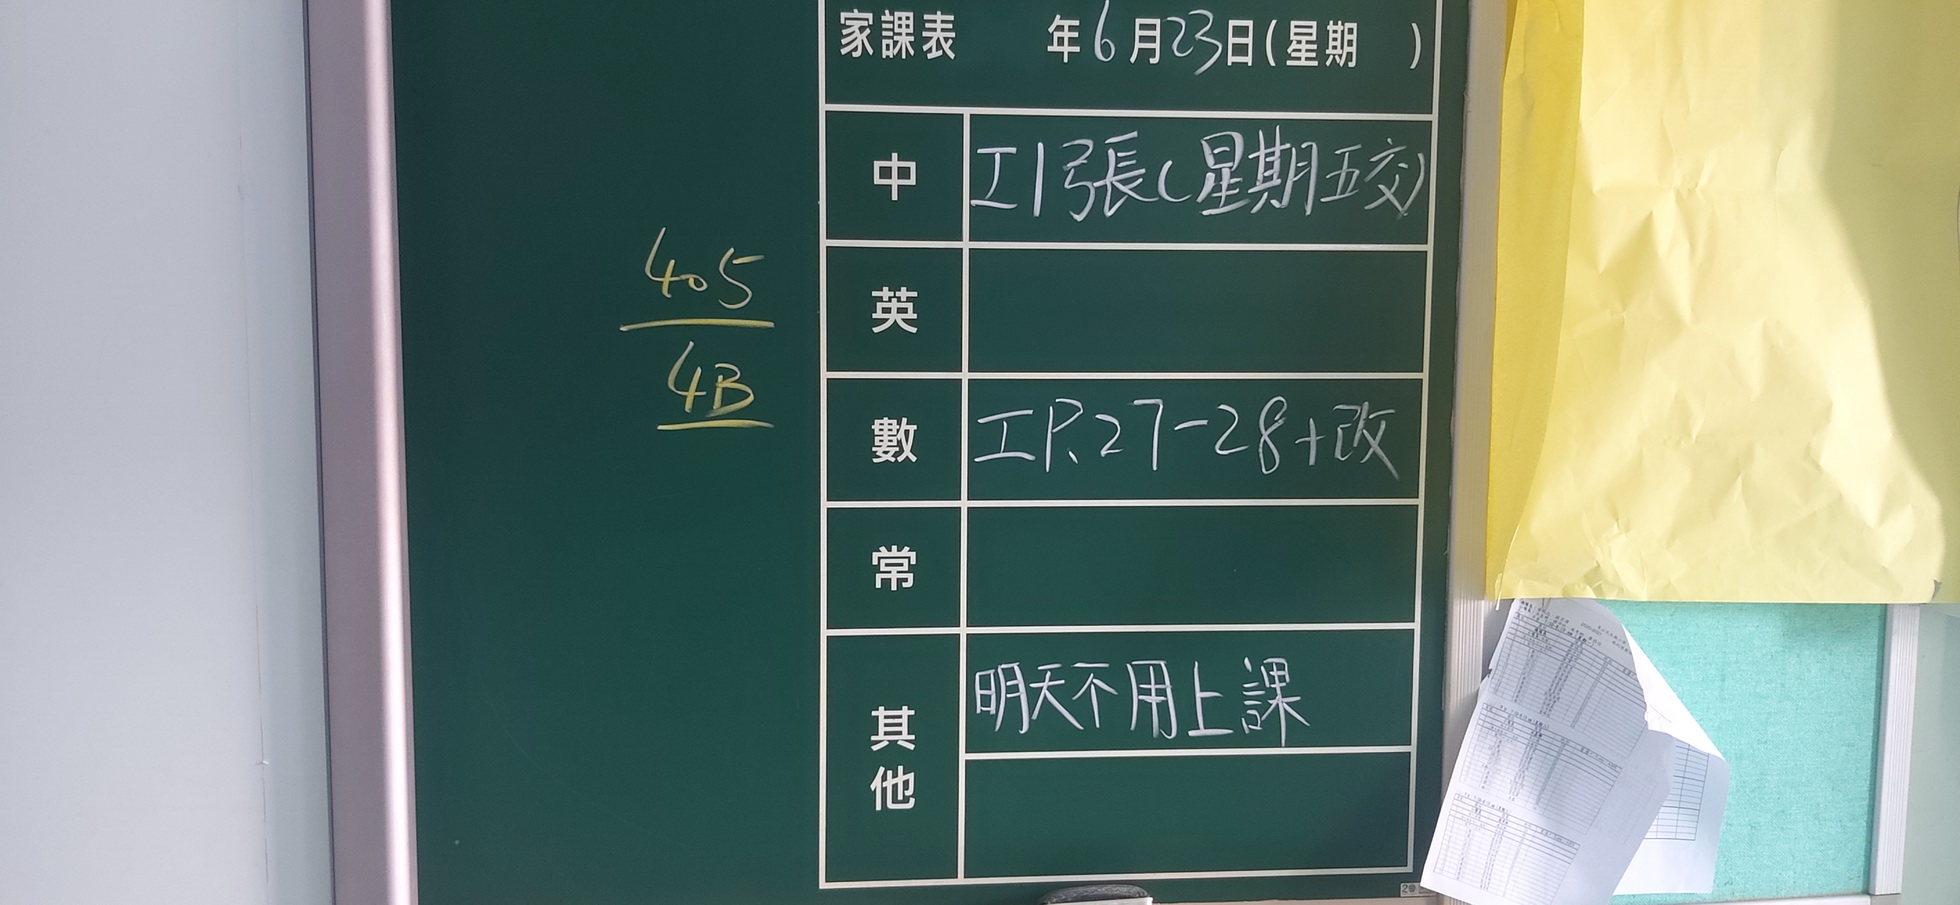 家課表 年6月23日(星期 )
中 工1張(星期五交)
英
數 工P.27-28+改
常
其他 明天不用上課
405
4B